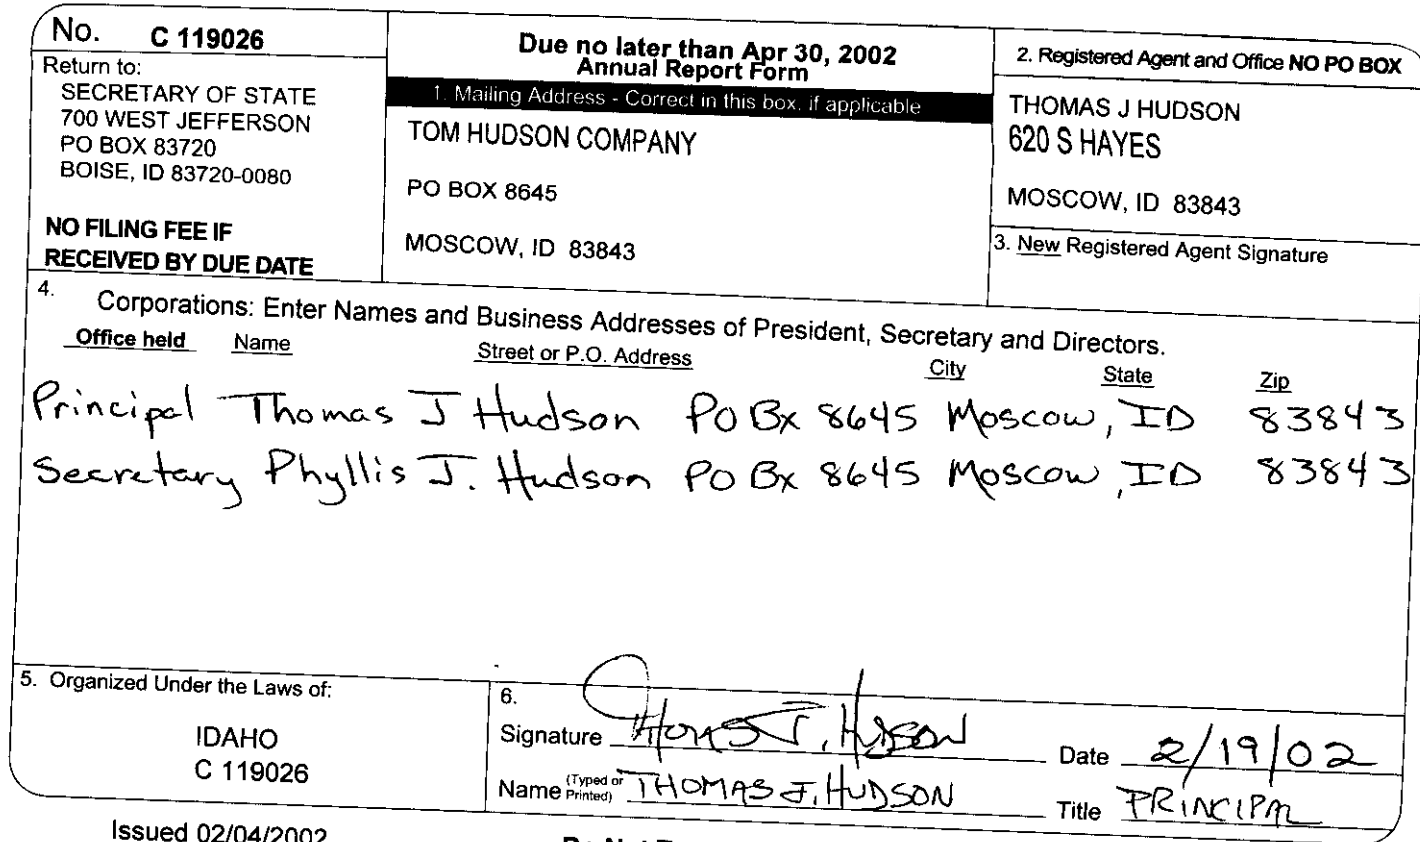 No. C 119026
Return to:
SECRETARY OF STATE
700 WEST JEFFERSON
PO BOX 83720
BOISE, ID 83720-0080
NO FILING FEE IF
RECEIVED BY DUE DATE
Due no later than Apr 30, 2002
Annual Report Form
1. Mailing Address - Correct in this box, if applicable
TOM HUDSON COMPANY
PO BOX 8645
MOSCOW, ID 83843
2. Registered Agent and Office NO PO BOX
THOMAS J HUDSON
620 S HAYES
MOSCOW, ID 83843
3. New Registered Agent Signature
4. Corporations: Enter Names and Business Addresses of President, Secretary and Directors.
Office held Name Street or P.O. Address City State Zip
Principal Thomas J Hudson PO Bx 8645 Moscow, ID 83843
Secretary Phyllis J. Hudson PO Bx 8645 Moscow, ID 83843
5. Organized Under the Laws of:
IDAHO
C 119026
6.
Signature Thomas J. Hudson Date 2/19/02
Name (Typed or Printed) THOMAS J. HUDSON Title PRINCIPAL
Issued 02/04/2002
Do Not